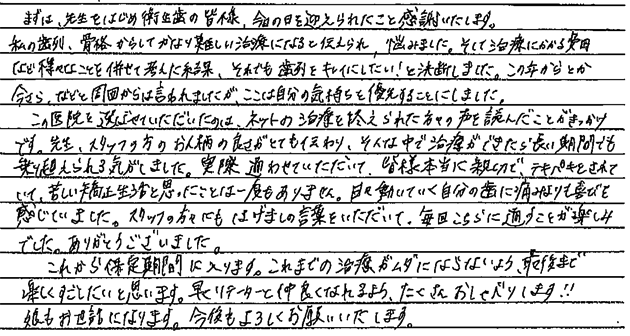 まずは、先生をはじめ衛生歯の皆様、今日の日を迎えられたこと感謝いたします。
私の歯列、骨格からしてかなり難しい治療になると伝えられ、悩みました。そして治療にかかる費用
など様々なことを併せて考えた結果、それでも歯列をキレイにしたい！と決断しました。この年からとか
今さら、などと周囲からは言われましたが、ここは自分の気持ちを優先することにしました。
この医院を選ばせていただいたのは、ネットの治療を終えられた方々の声を読んだことがきっかけ
です。先生、スタッフの方のお人柄の良さがとても伝わり、そんな中で治療ができたら長い期間でも
乗り越えられる気がしました。実際通わせていただいて、皆様本当に親切で、テキパキとされて
いて、苦しい矯正生活と思ったことは一度もありません。日々動いていく自分の歯に痛みよりも喜びを
感じていました。スタッフの方々にもはげましの言葉をいただいて、毎回こちらに通うことが楽しみ
でした。ありがとうございました。
これから保定期間に入ります。これまでの治療がムダにならないよう、最後まで
楽しくすごしたいと思います。早くリテーナーと仲良くなれるよう、たくさんおしゃべりします!!
娘もお世話になります。今後もよろしくお願いいたします。